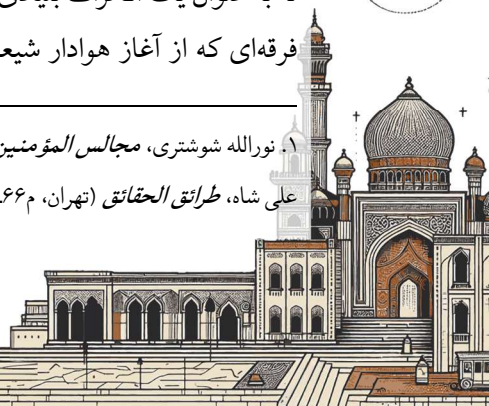 فرقه‌ای که از آغاز هوادار شیع
۱. نورالله شوشتری، مجالس المؤمنین
علی شاه، طرائق الحقائق (تهران، م۶۶